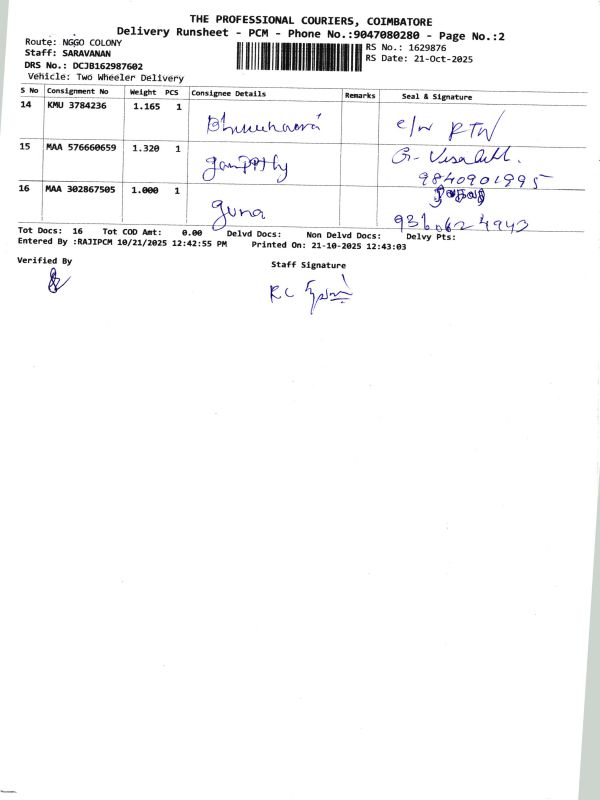 THE PROFESSIONAL COURIERS, COIMBATORE
Delivery Runsheet - PCM - Phone No.:9047080280 - Page No.:2
Route: NGGO COLONY
RS No.: 1629876
Staff: SARAVANAN
RS Date: 21-Oct-2025
DRS No.: DCJB162987602
Vehicle: Two Wheeler Delivery
S No Consignment No Weight PCS Consignee Details Remarks Seal & Signature
14 KMU 3784236 1.165 1
RTN
15 MAA 576660659 1.320 1
9840901995
16 MAA 302867505 1.000 1 guna
Tot Docs: 16 Tot COD Amt: 0.00 Delvd Docs: Non Delvd Docs: Delvy Pts:
Entered By :RAJIPCM 10/21/2025 12:42:55 PM Printed On: 21-10-2025 12:43:03
Verified By
Staff Signature